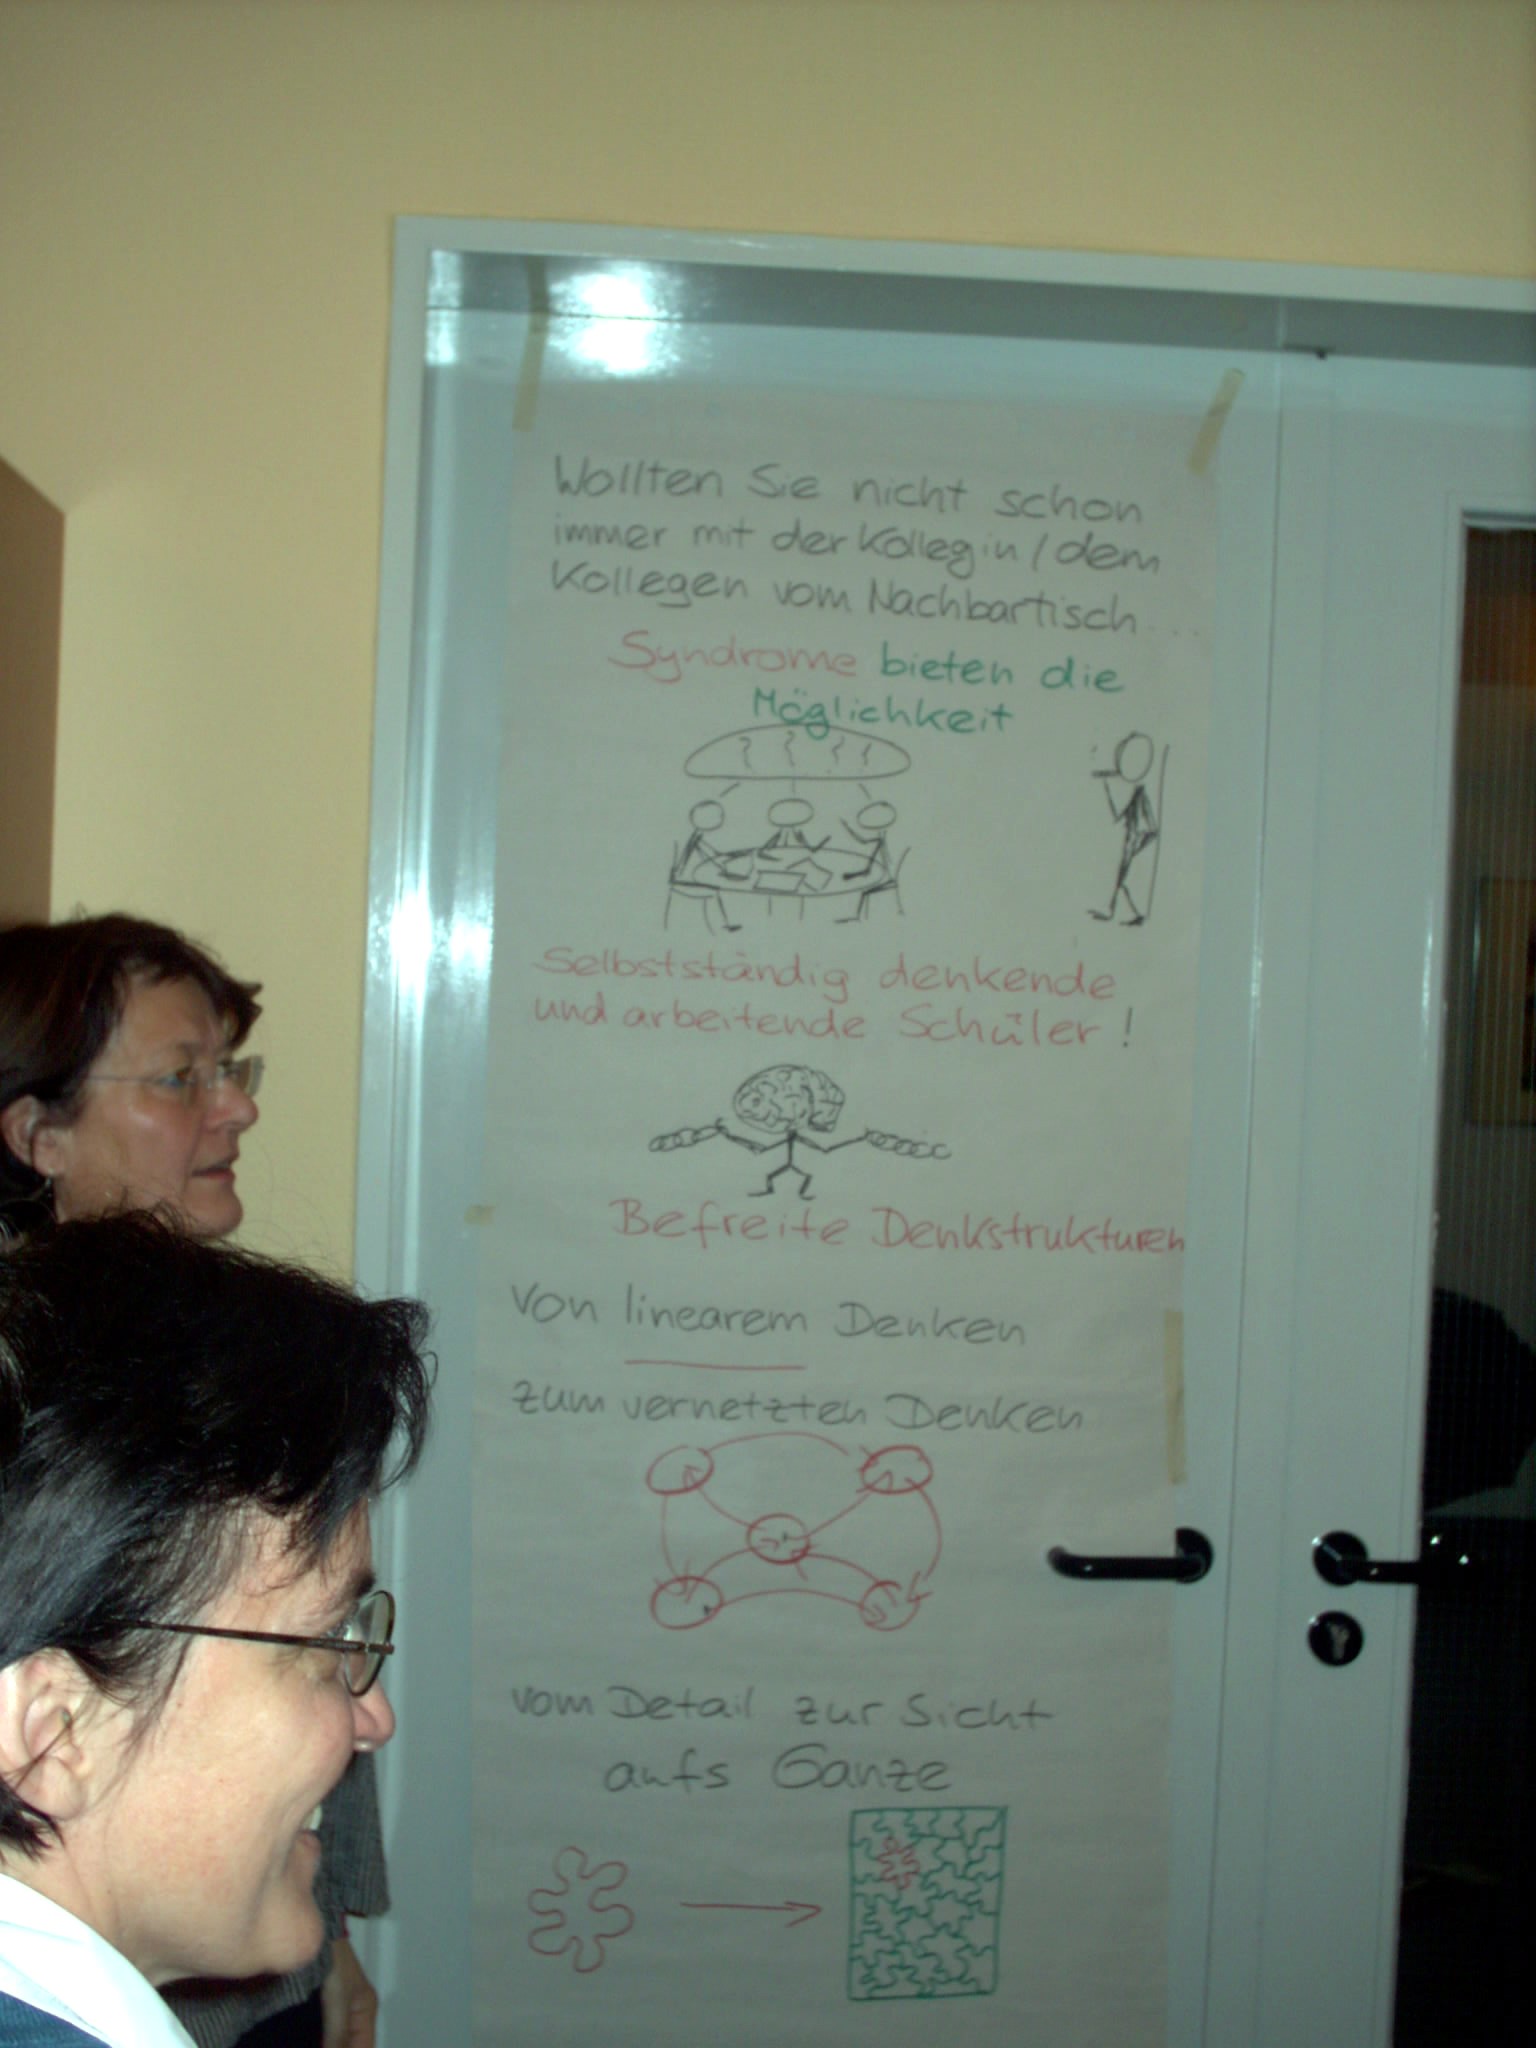 Wollten Sie nicht schon
immer mit der Kollegin / dem
Kollegen vom Nachbartisch ...
Syndrome bieten die
Möglichkeit
Selbstständig denkende
und arbeitende Schüler !
Befreite Denkstrukturen
von linearem Denken
zum vernetzten Denken
vom Detail zur Sicht
aufs Ganze